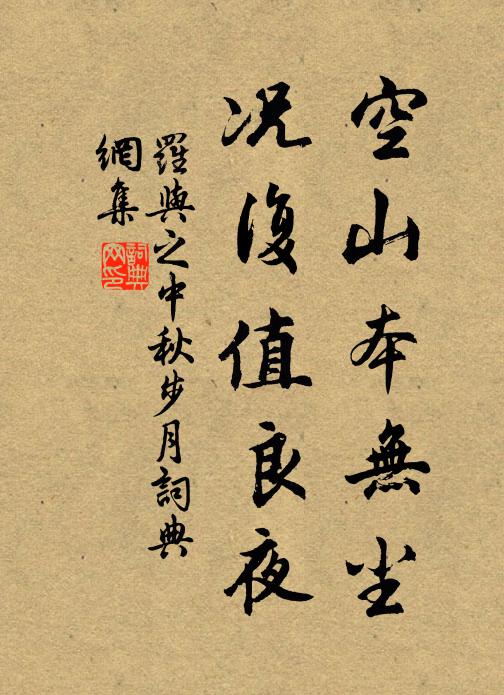 空山本無尘
况復值良夜
羅與之中秋步月詞典
網集
詞典
网印